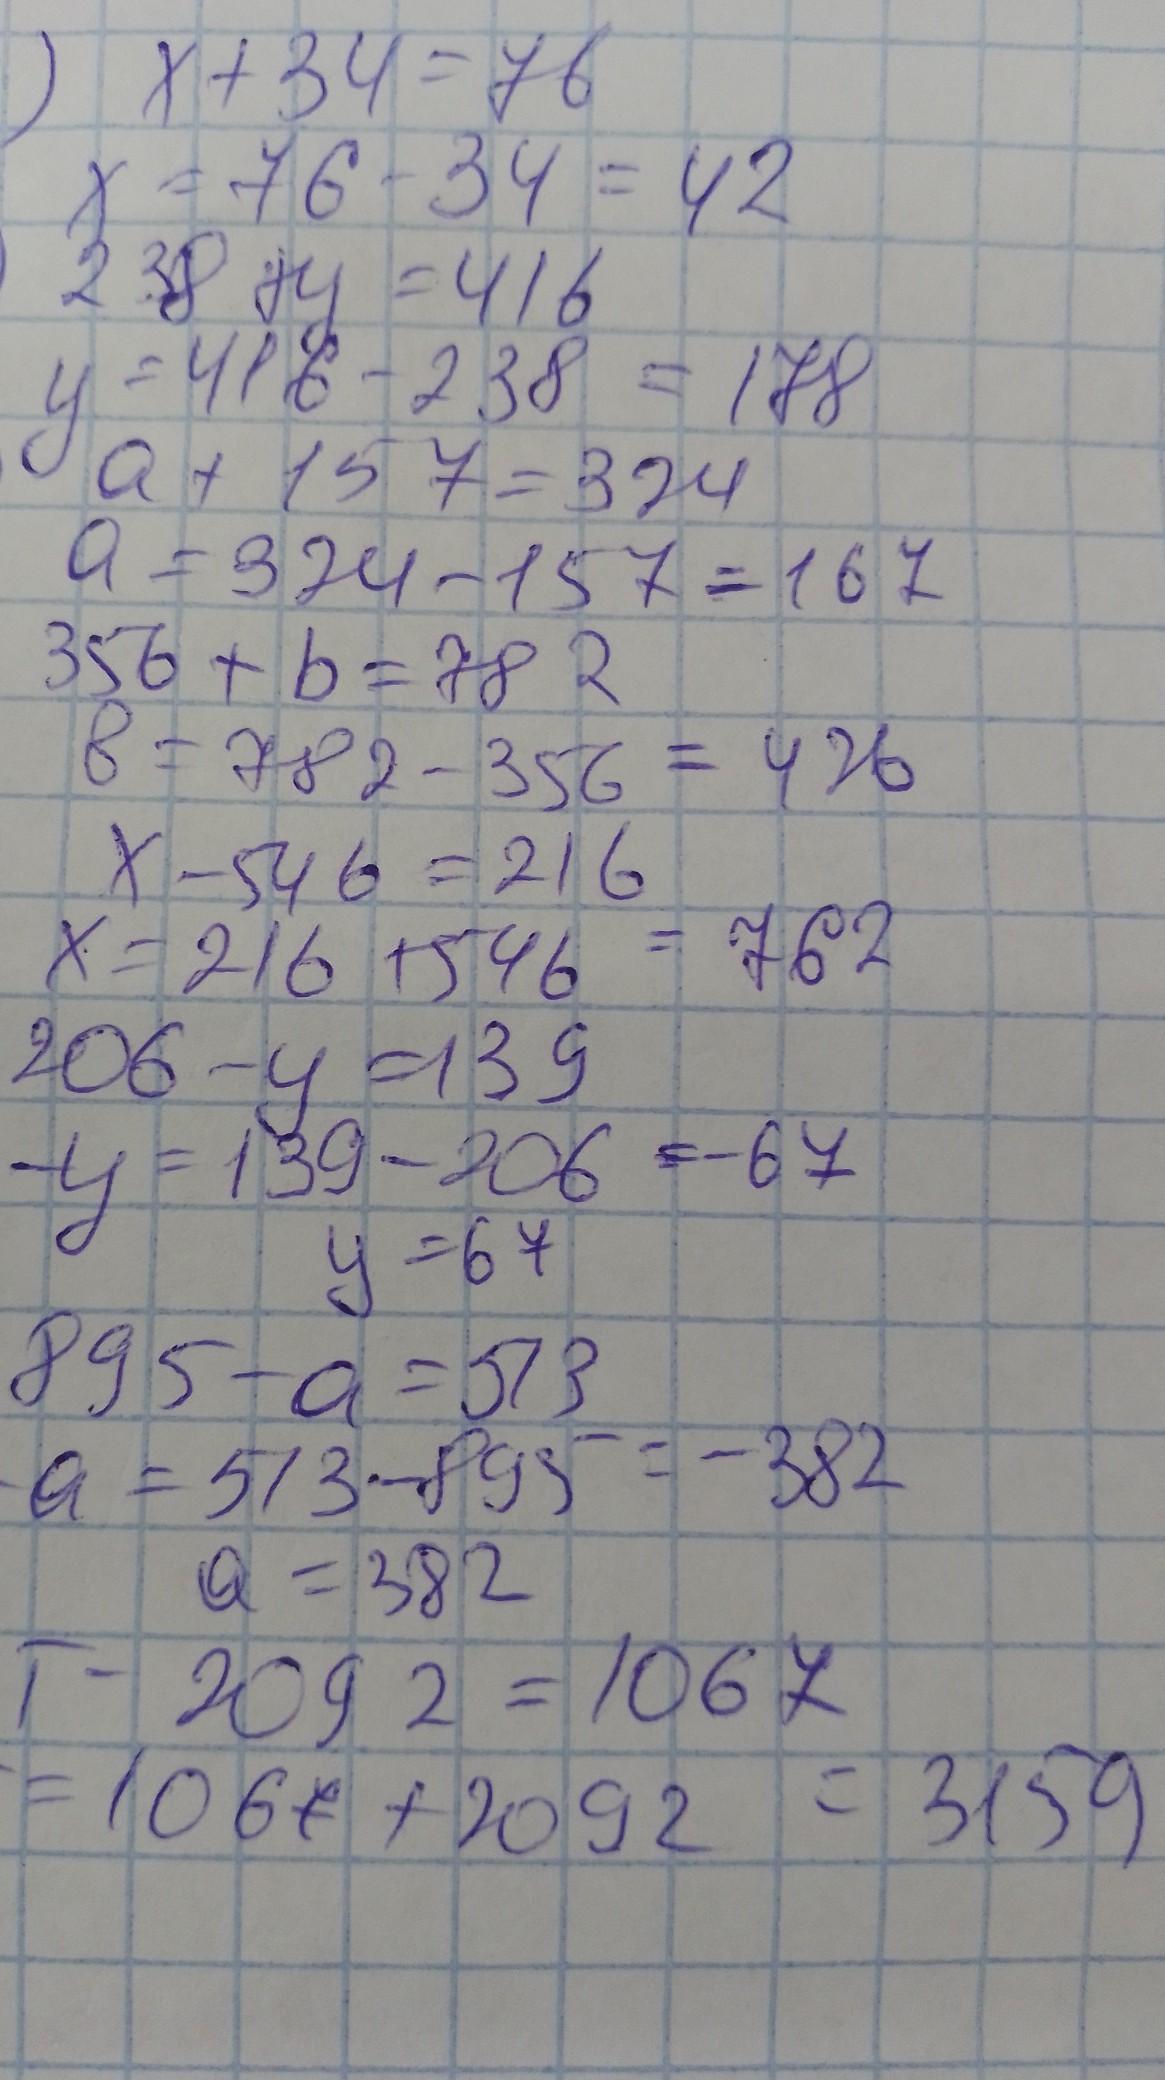 ) x + 34 = 76
x = 76 - 34 = 42
238 + y = 416
y = 416 - 238 = 178
a + 157 = 324
a = 324 - 157 = 167
356 + b = 782
в = 782 - 356 = 426
x - 546 = 216
x = 216 + 546 = 762
206 - y = 139
-y = 139 - 206 = -67
y = 67
895 - a = 513
-a = 513 - 895 = -382
a = 382
T - 2092 = 1067
= 1067 + 2092 = 3159